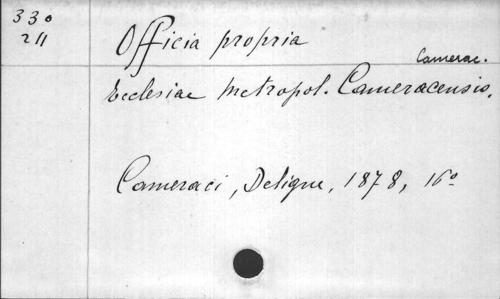 330
211
Officia propria
Camerac.
Ecclesiae Metropol. Cameracensis.
Cameraci, Deligne, 1878, 16º